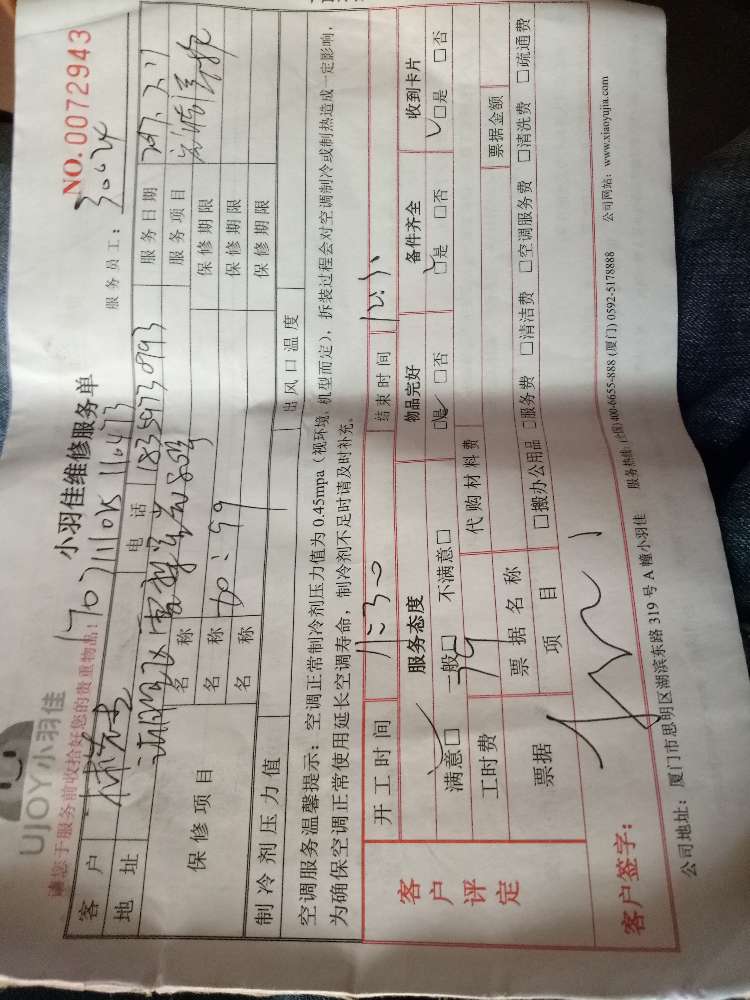 UJOY小羽佳
小羽佳维修服务单
NO.0072943
请您于服务前收拾好您的贵重物品!
服务员工:
客户
电话
18359730993
服务日期
地址
服务项目
保修项目
名称
保修期限
名称
60:99
保修期限
名称
保修期限
制冷剂压力值
出风口温度
空调服务温馨提示:空调正常制冷剂压力值为0.45mpa(视环境、机型而定),拆装过程会对空调制冷或制热造成一定影响,
为确保空调正常使用延长空调寿命,制冷剂不足时请及时补充。
客户评定
开工时间
11:30
结束时间
服务态度
物品完好
备件齐全
收到卡片
满意□ 一般□ 不满意□
□是 □否
□是 □否
□是 □否
工时费
代购材料费
票据
票据名称
票据金额
项目
□搬办公用品 □服务费 □清洁费 □空调服务费 □清洗费 □疏通费
客户签字:
公司地址:厦门市思明区湖滨东路319号A幢小羽佳 服务热线:(全国)400-6655-888 (厦门) 0592-5178888 公司网站:www.xiaoyujia.com